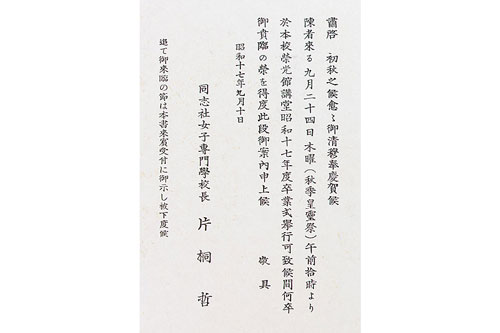 謹啓 初秋之候愈〻御清穆奉慶賀候
陳者來る九月二十四日木曜(秋季皇靈祭)午前拾時より
於本校榮光館講堂昭和十七年度卒業式擧行可致候間何卒
御賁臨の榮を得度此段御案内申上候 敬具
昭和十七年九月十日
同志社女子專門學校長 片桐哲
追て御來臨の節は本書來賓受付に御示し被下度候